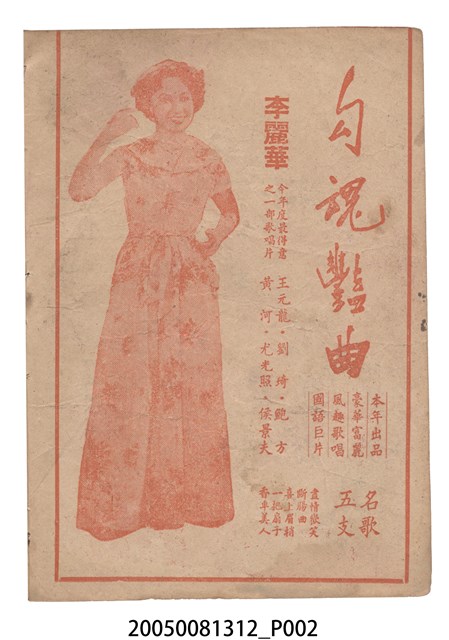 勾魂豔曲
本年出品
豪華富麗
風趣歌唱
國語巨片
名歌
五支
盡情微笑
斷腸曲
喜上眉梢
一把扇子
香車美人
李麗華
今年度最得意
之一部歌唱片
王元龍・劉琦・鮑方
黃河・尤光照・侯景夫
20050081312_P002